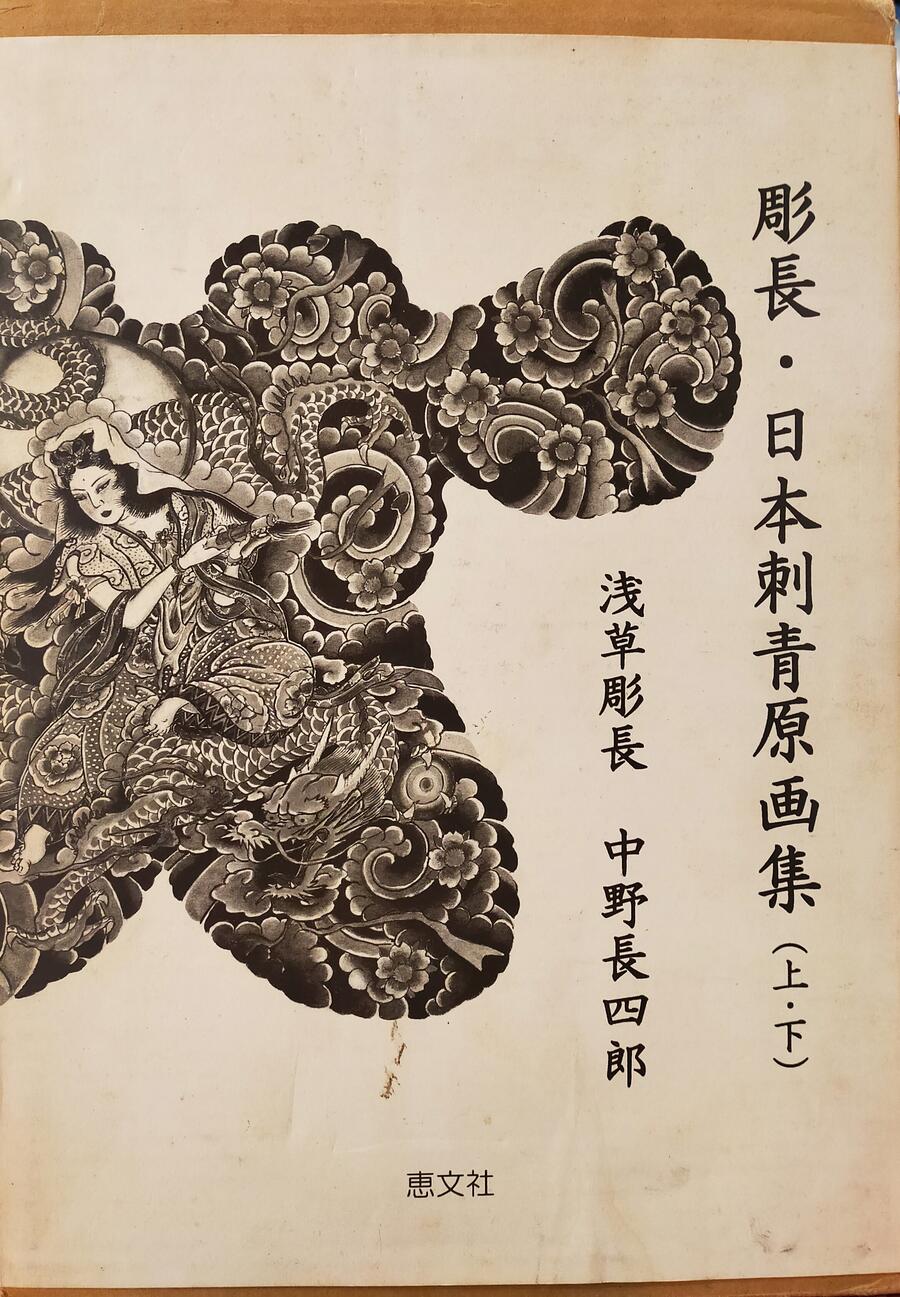 彫長・日本刺青原画集（上・下）
浅草彫長　中野長四郎
恵文社